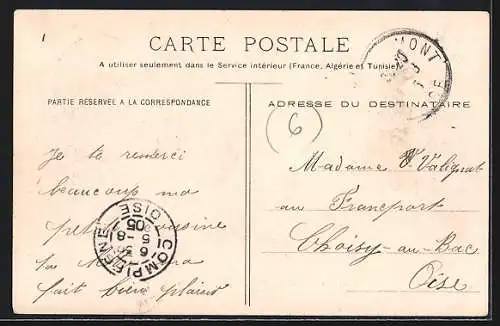 CARTE POSTALE
A utiliser seulement dans le Service intérieur (France, Algérie et Tunisie)
PARTIE RÉSERVÉE A LA CORRESPONDANCE
ADRESSE DU DESTINATAIRE
(6)
Je te remerci
beaucoup ma
petite cousine
fait bien plaisir
COMPIEGNE
OISE
6
5 - 8
05
MONT
Madame Valignat
au Francport
Choisy-au-Bac
Oise